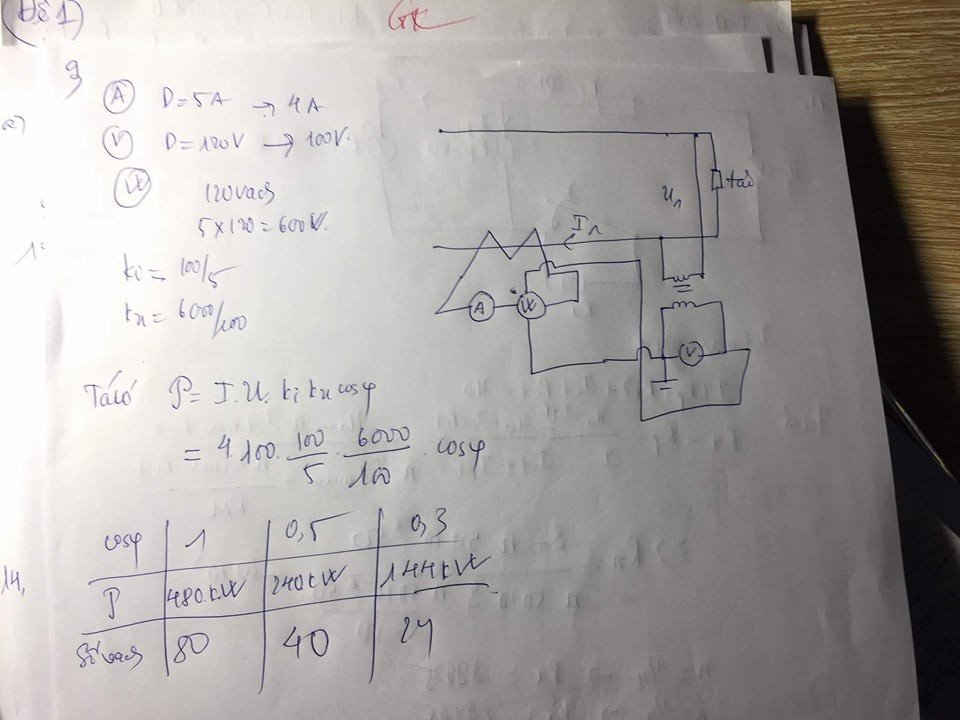 (Đề 1)
GK
9
a)
(A) D=5A → 4A
(V) D=120V → 100V.
(W) 120 vạch
5x120=600W.
ki = 100/5
ku = 6000/100
Ta có P= I.U. ki ku cosφ
= 4.100. 100/5 . 6000/100 . cosφ
cosφ 1 0,5 0,3
14,
P 480kW 240kW 144kW
Số vạch 80 40 24
U1
tải
I1
A
W
V